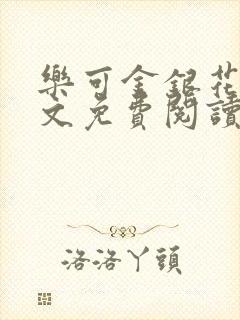 樂可金銀花
文免費閱讀
洛洛丫頭